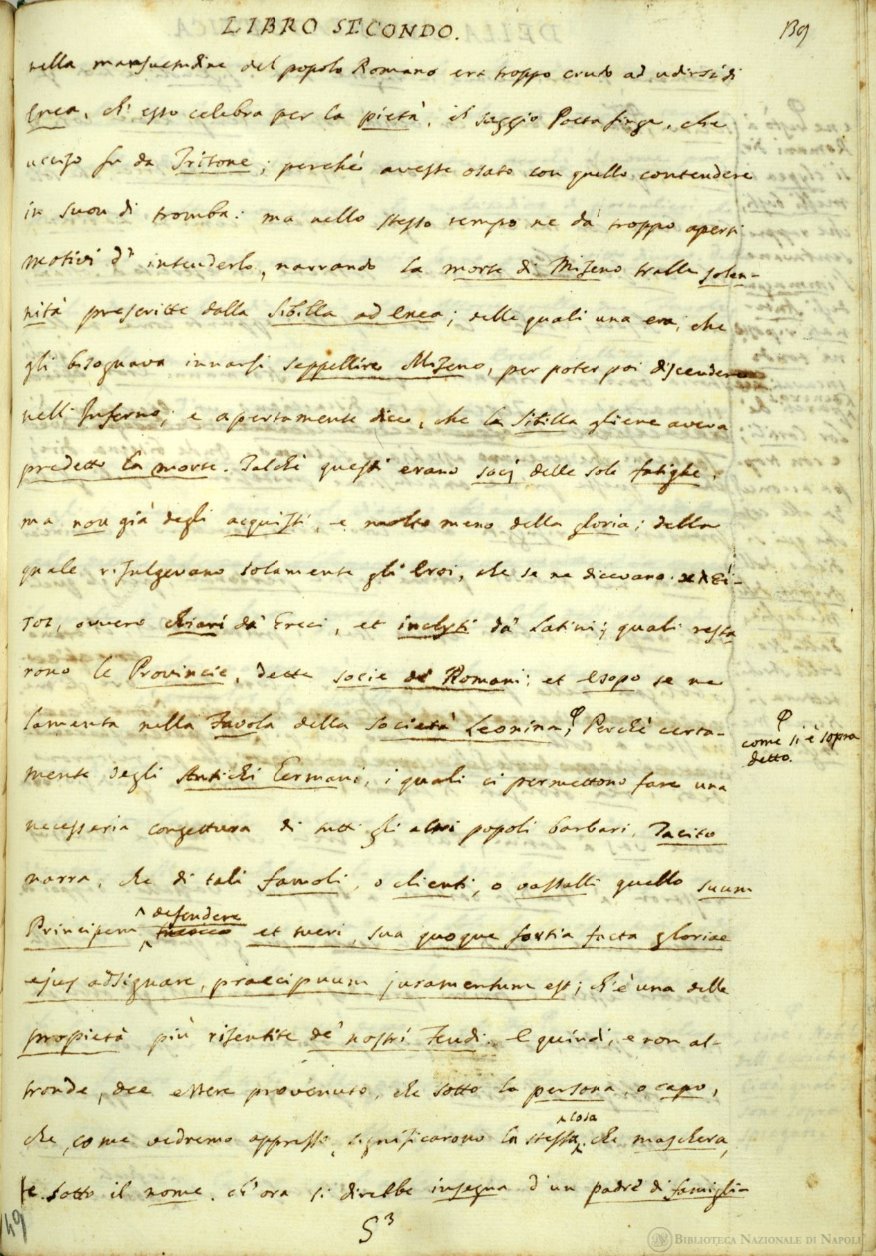 LIBRO SECONDO.
139
nella mansuetudine del popolo Romano era troppo crudo ad udirsi di
Enea, ch' esso celebra per la pietà, il saggio Poeta finge, che
ucciso fu da Tritone; perchè avesse osato con quello contendere
in suon di tromba: ma nello stesso tempo ne dà troppo aperti
motivi d' intenderlo, narrando la morte di Miseno tralle solen-
nità prescritte dalla Sibilla ad Enea; delle quali una era, che
gli bisognava innanzi seppellire Miseno, per poter poi discendere
nell' Inferno; e apertamente dice, che la Sibilla gliene aveva
predetto la morte. Talchè questi erano socj delle sole fatighe,
ma non già degli acquisti, e molto meno della gloria; della
quale rifulgevano solamente gli Eroi, che se ne dicevano κλει-
τοι, ovvero chiari da' Greci, et inclyti da' Latini; quali resta
rono le Provincie, dette socie de' Romani: et Esopo se ne
lamenta nella Favola della Società Leonina; φ Perchè certa-
φ
come si è sopra
detto.
mente degli Antichi Germani, i quali ci permettono fare una
necessaria congettura di tutti gli altri popoli barbari, Tacito
narra, che di tali famoli, o clienti, o vassalli quello suum
Principem defendere et tueri, sua quoque fortia facta gloriae
ejus adsignare, praecipuum juramentum est; ch' è una delle
propietà più risentite de' nostri Feudi. E quindi, e non al-
tronde, dee essere provenuto, che sotto la persona, o capo,
che, come vedremo appresso, significarono la stessa cosa che maschera,
e sotto il nome, ch' ora si direbbe insegna d' un padre di famiglia
S 3
149
BIBLIOTECA NAZIONALE DI NAPOLI